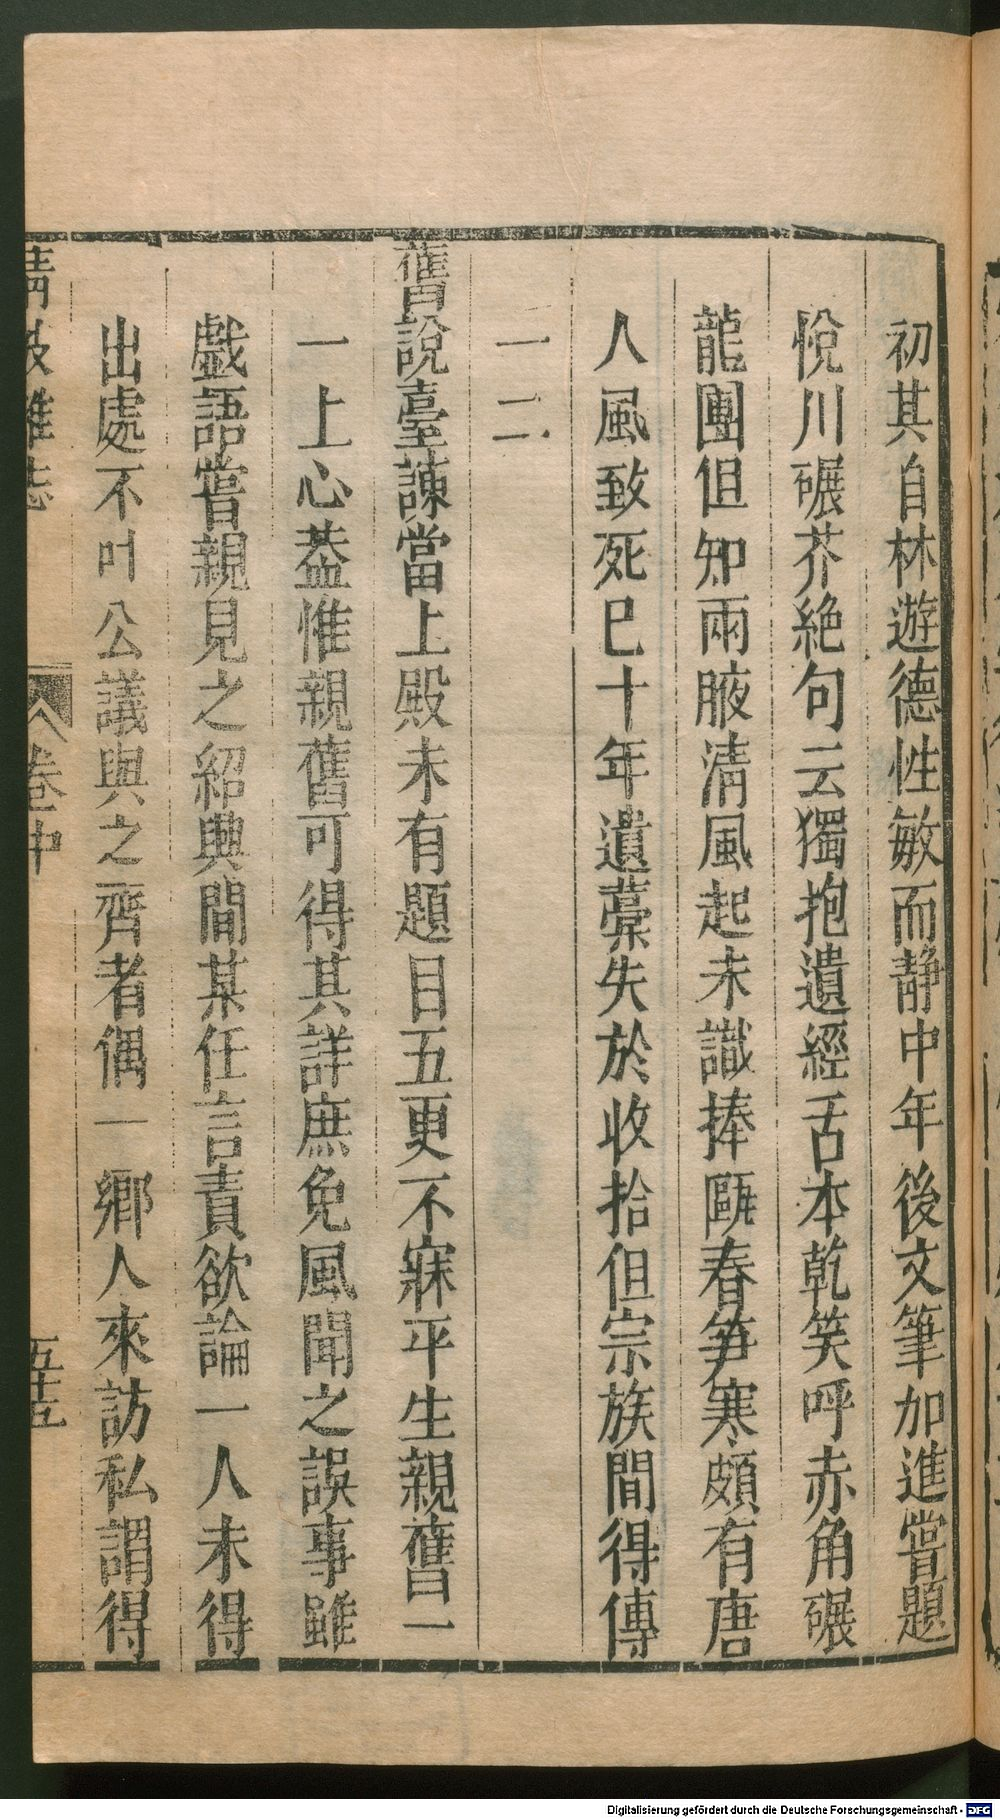 初其自林遊德性敏而靜中年後文筆加進嘗題
悅川碾芥絶句云獨抱遺經舌本乾笑呼赤角碾
龍團但知兩腋淸風起未識捧甌春笋寒頗有唐
人風致死已十年遺藁失於收拾但宗族間得傳
一二
舊說臺諫當上殿未有題目五更不寐平生親舊一
一上心葢惟親舊可得其詳庶免風聞之誤事雖
戲語嘗親見之紹興間某任言責欲論一人未得
出處不叶公議與之齊者偶一鄉人來訪私謂得
清波雜志 卷中 五十五
Digitalisierung gefördert durch die Deutsche Forschungsgemeinschaft - DFG